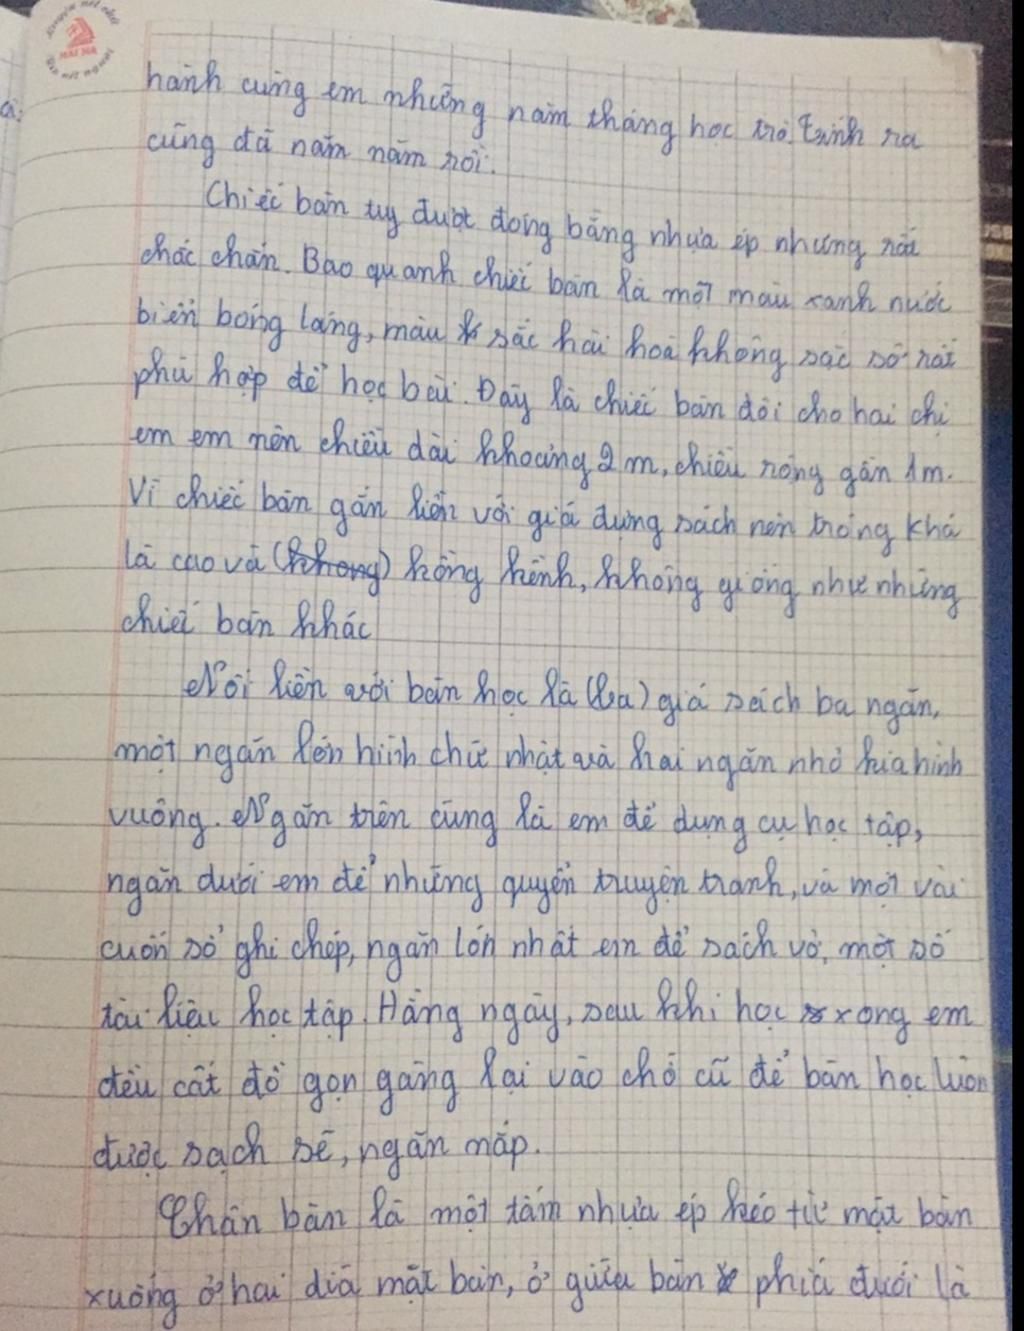 hành cùng em những năm tháng học trò. Tính ra
cũng đã năm năm rồi.
Chiếc bàn tuy được đóng bằng nhựa ép nhưng rất
chắc chắn. Bao quanh chiếc bàn là một màu xanh nước
biển bóng láng, màu sắc hài hoà không sặc sỡ rất
phù hợp để học bài. Đây là chiếc bàn đôi cho hai chị
em em nên chiều dài khoảng 2m, chiều rộng gần 1m.
Vì chiếc bàn gắn liền với giá đựng sách nên trông khá
là cao và (không) kồng kềnh, không giống như những
chiếc bàn khác
Nối liền với bàn học là (ba) giá sách ba ngăn,
một ngăn lớn hình chữ nhật và hai ngăn nhỏ kia hình
vuông. Ngăn trên cùng là em để dụng cụ học tập,
ngăn dưới em để những quyển truyện tranh, và một vài
cuốn sổ ghi chép, ngăn lớn nhất em để sách vở, một số
tài liệu học tập. Hằng ngày, sau khi học xong em
đều cất đồ gọn gàng lại vào chỗ cũ để bàn học luôn
được sạch sẽ, ngăn nắp.
Chân bàn là một tấm nhựa ép kéo từ mặt bàn
xuống ở hai dìa mặt bàn, ở giữa bàn phía dưới là